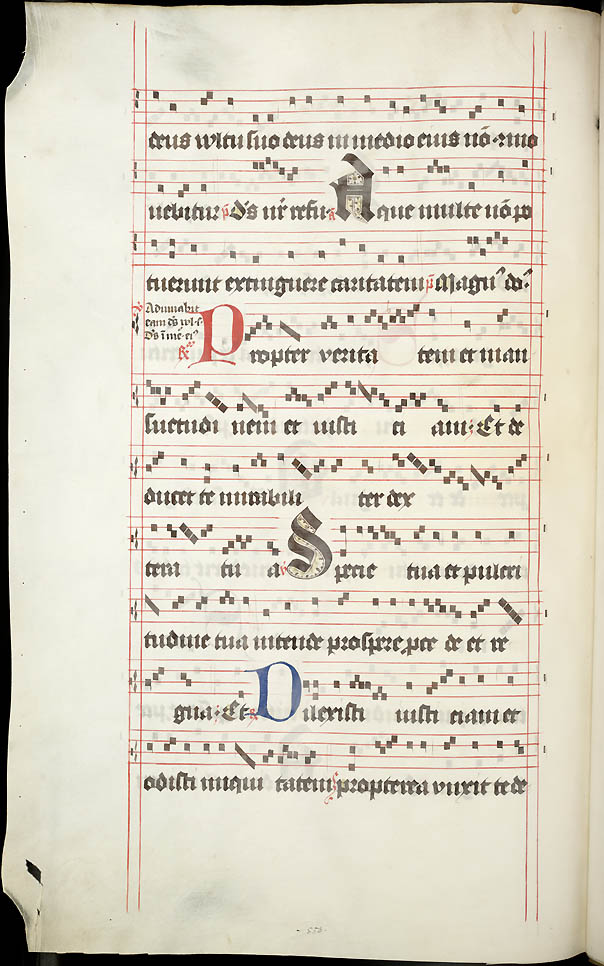 deus vultu suo deus in medio eius nō cōmo
uebitur p̄ d̄s nr̄ refu. a Aque multe nō po
tuerunt extinguere caritatem p̄ Magnus dn̄s
Adiuuabit
eam d̄s vl. s.
D̄s ī me. eiꝰ
Propter verita tem et man
suetudi nem et iusti ci am. Et de
ducet te mirabili ter dex
tera tu a Specie tua et pulcri
tudine tua intende prospere pce de et re
gna. Et. Dilexisti iusti ciam et
odisti iniqui tatem propterea vnxit te de